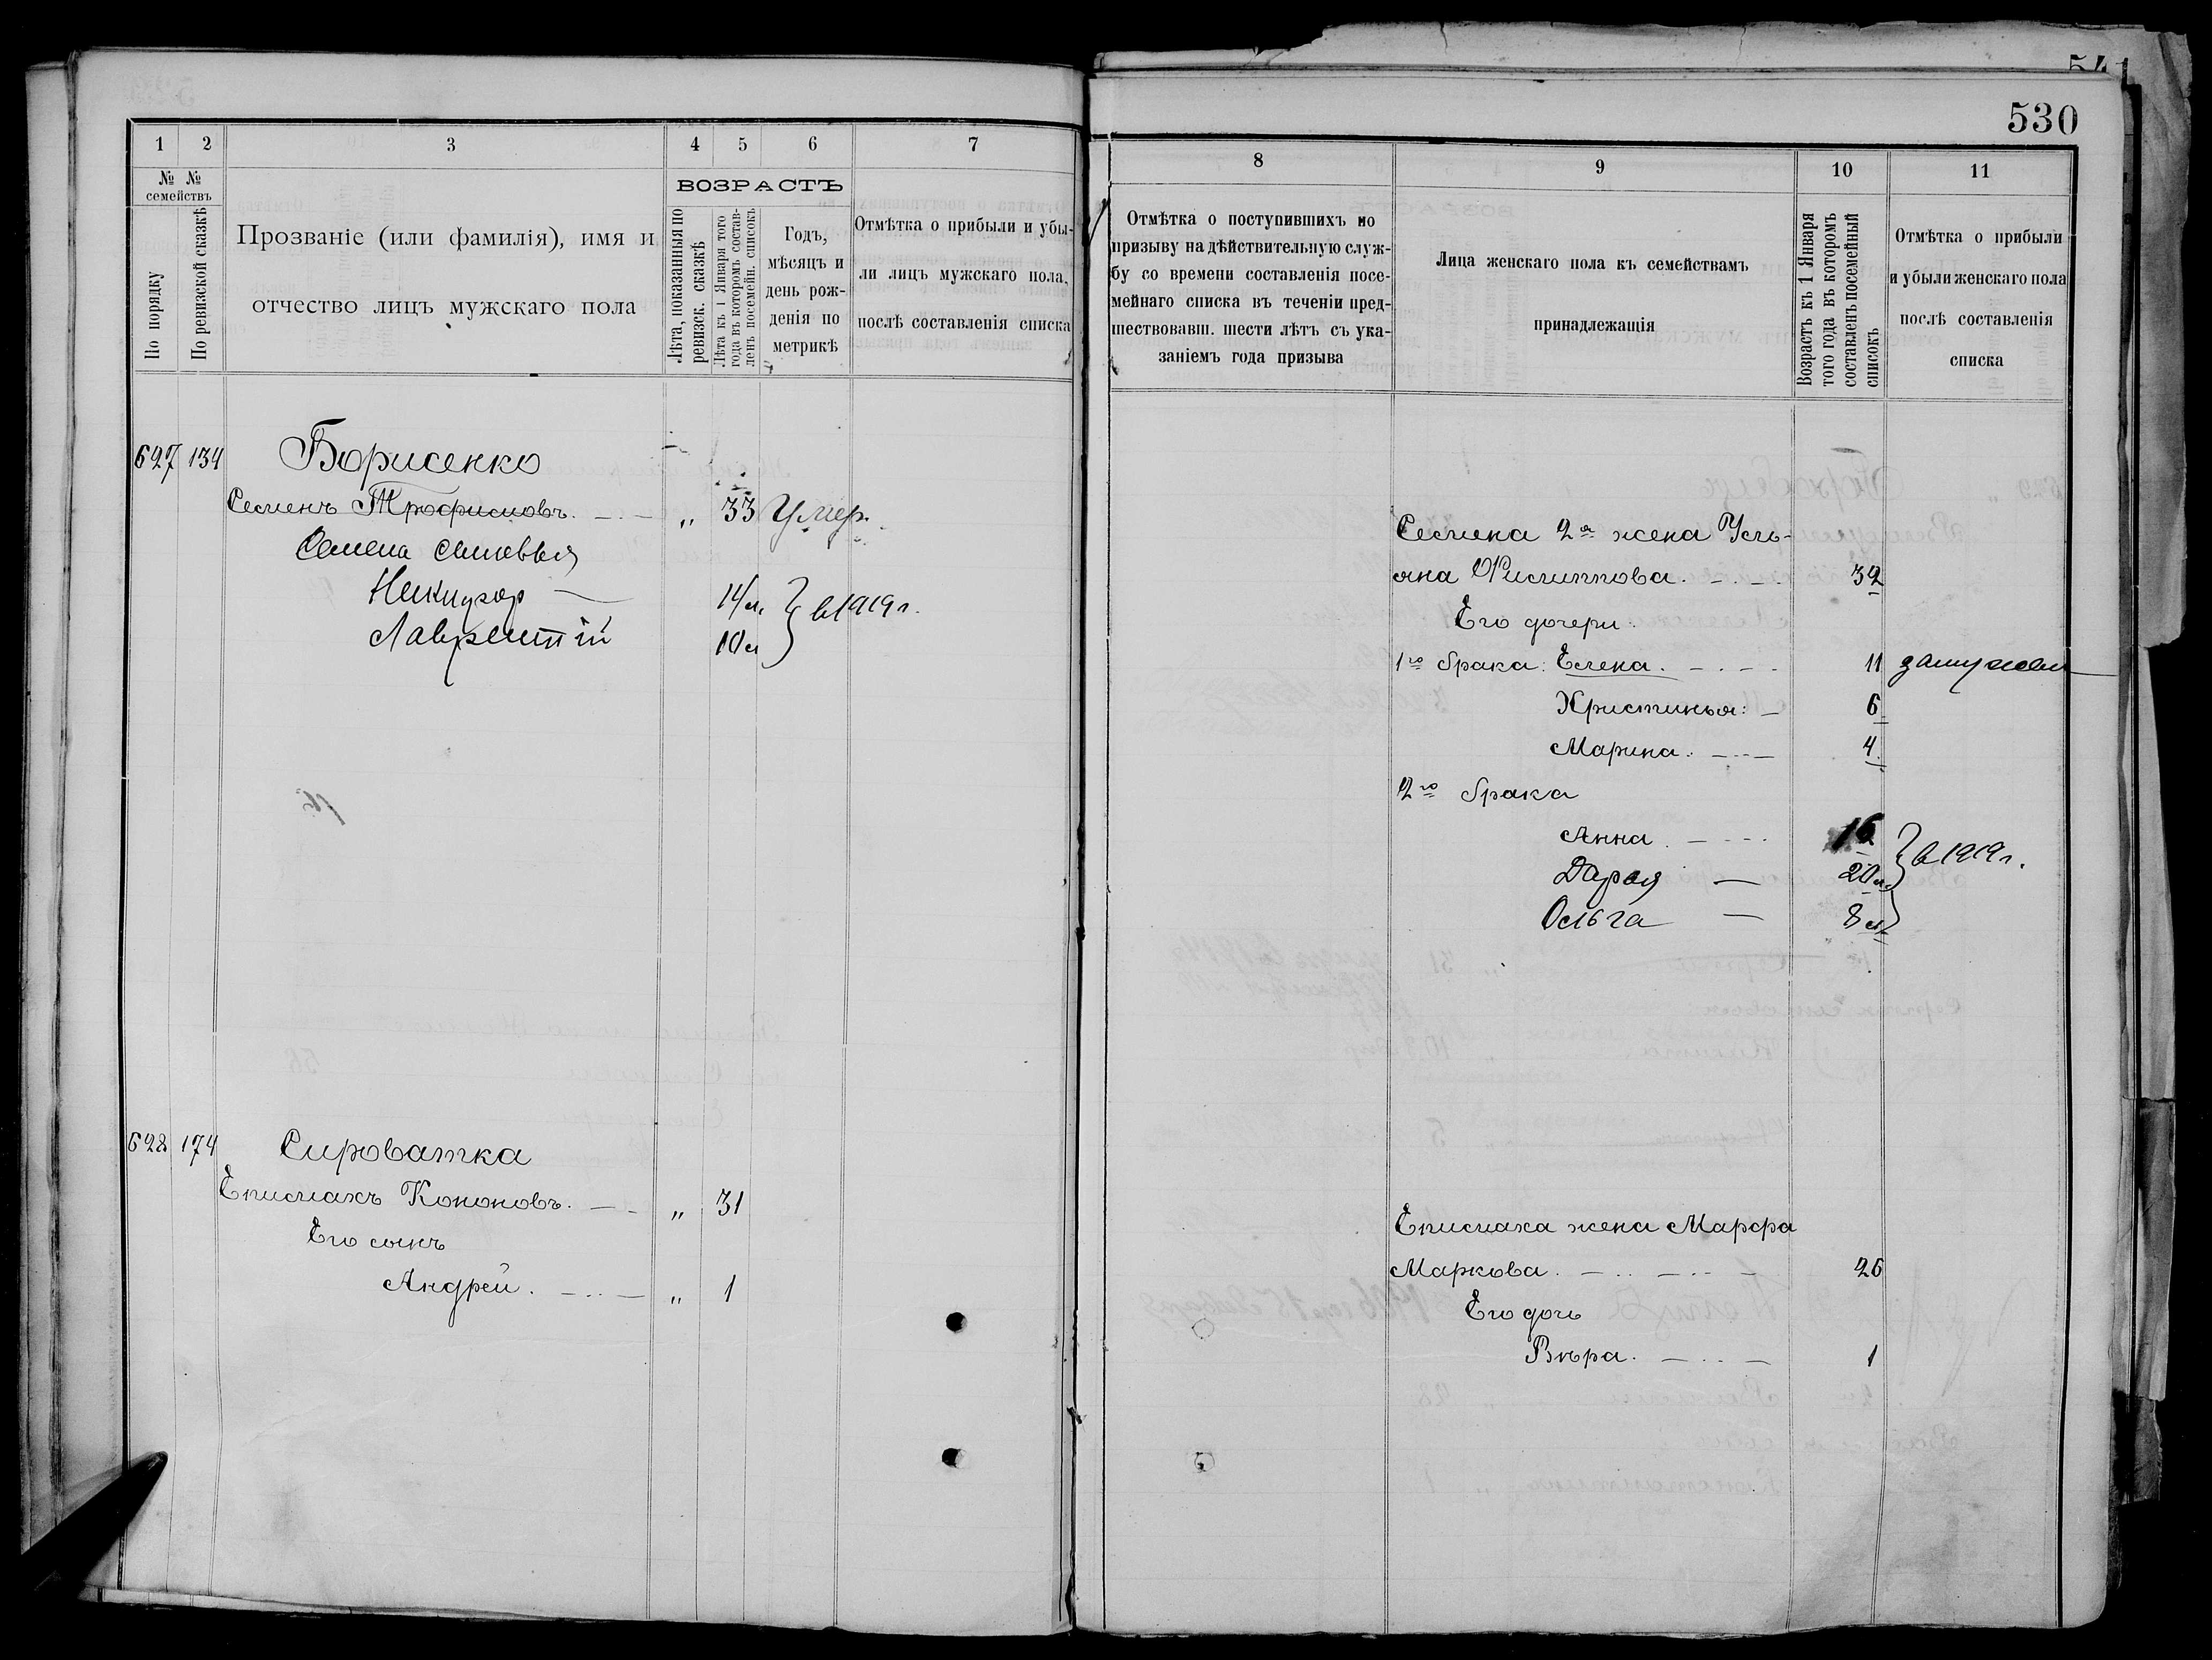 541
530
1 2 3 4 5 6 7
№ № семействъ
По порядку
По ревизской сказкѣ
Прозваніе (или фамилія), имя и
отчество лицъ мужскаго пола
ВОЗРАСТЪ
Лѣта, показанныя по
ревизск. сказкѣ
Лѣта къ 1 Января того
года въ которомъ состав-
ленъ посемейн. списокъ
Годъ,
мѣсяцъ и
день рож-
денія по
метрикѣ
Отмѣтка о прибыли и убы-
ли лицъ мужскаго пола,
послѣ составленія списка
627 134 Борисенко
Семенъ Трофимовъ. „ 33 Умер.
Семена сыновья
Никифор — 14 л.
Лаврентій 10 л } в 1919 г.
628 174 Сироватка
Епимахъ Кононовъ. „ 31
Его сынъ
Андрей. „ 1
8 9 10 11
Отмѣтка о поступившихъ по
призыву на дѣйствительную служ-
бу со времени составленія посе-
мейнаго списка въ теченіи пред-
шествовавш. шести лѣтъ съ ука-
заніемъ года призыва
Лица женскаго пола къ семействамъ
принадлежащія
Возрастъ къ 1 Января
того года въ которомъ
составленъ посемейный
списокъ
Отмѣтка о прибыли
и убыли женскаго пола
послѣ составленія
списка
Семена 2я жена Уль-
яна Филиппова. 32
Его дочери.
1го брака: Елена. 11 замужем
Христинья: 6
Марина. 4.
2го брака
Анна. 16
Дарья — 20 л } в 1919 г.
Ольга — 8 л
Епимаха жена Марфа
Маркова. 26
Его дочь
Вѣра. 1